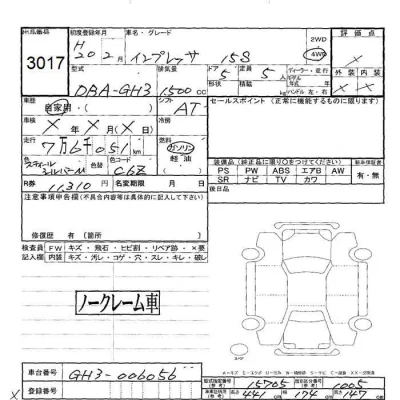 出品番号 初度登録年月 車名・グレード 評価点
3017 H 20 2月 インプレッサ 15S 2WD 4WD ×
型式 排気量 ドア 定員 ディーラー・並行 外装 内装
DBA-GH3 1500cc 5 5人 × ×
形状 積載 kg ハンドル 左・右
車歴 シフト セールスポイント(正常に機能するものに限る)
自家用 ( ) AT
車検 冷房
×年×月(×日)
走行 燃料
7万6千051km ガソリン
軽油
スチールシルバーM 色替 色コード C6Z
装備品(純正品に限り○をつけてください)
PS PW ABS エアB AW 有・無
SR ナビ TV カワ
R券 11,310 円 名変期限 月 日
後日品
注意事項申告欄(不具合内容等は具体的に記入して下さい)
修復歴 有(箇所 )
検査員 FW キズ・飛石・ヒビ割・リペア跡・×要
記入欄 内装 キズ・汚レ・コゲ・穴・スレ・キレ・破レ
ノークレーム車
車台番号 GH3-006056
登録番号
型式指定番号 15705 類別区分番号 1005
長さ 441 幅 174 高さ 147